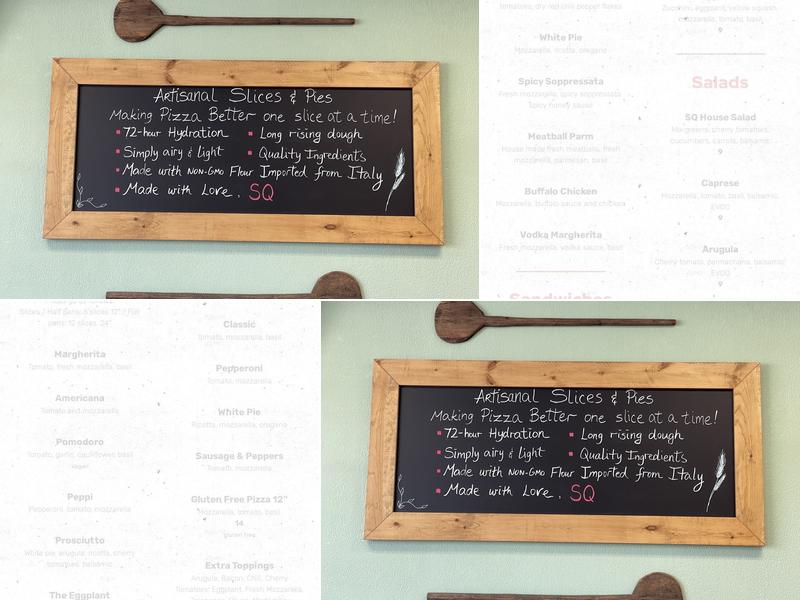 Artisanal Slices & Pies
Making Pizza Better one slice at a time!
72-hour Hydration
Long rising dough
Simply airy & light
Quality Ingredients
Made with Non-GMO Flour Imported from Italy
Made with Love, SQ
tomatoes, dry red chili pepper flakes
White Pie
Mozzarella, ricotta, oregano
Spicy Soppressata
Fresh mozzarella, spicy soppressata
Spicy honey sauce
Meatball Parm
House made fresh meatballs, fresh
mozzarella, parmesan, basil
Buffalo Chicken
Mozzarella, buffalo sauce and chicken
Vodka Margherita
Fresh mozzarella, vodka sauce, basil
Sandwiches
Zucchini, eggplant, yellow squash
mozzarella, tomato, basil
9
Salads
SQ House Salad
Mixgreens, cherry tomatoes,
cucumbers, carrots, balsamic
9
Caprese
Mozzarella, tomato, basil, balsamic,
EVOO
9
Arugula
Cherry tomato, parmachana, balsamic,
EVOO
9
Slices / Half pans: 6 slices 12" / Full
pans: 12 slices. 24"
Margherita
Tomato, fresh mozzarella, basil
Americana
Tomato and mozzarella
Pomodoro
Tomato, garlic, cauliflower, basil
vegan
Peppi
Pepperoni, tomato, mozzarella
Prosciutto
White pie, arugula, ricotta, cherry
tomatoes, balsamic
The Eggplant
Classic
Tomato, mozzarella, basil
Pepperoni
Tomato, mozzarella
White Pie
Ricotta, mozzarella, oregano
Sausage & Peppers
Tomato, mozzarella
Gluten Free Pizza 12"
Mozzarella, tomato, basil
14
gluten free
Extra Toppings
Arugula, Bacon, Chili, Cherry
Tomatoes, Eggplant, Fresh Mozzarella,
Artisanal Slices & Pies
Making Pizza Better one slice at a time!
72-hour Hydration
Long rising dough
Simply airy & light
Quality Ingredients
Made with Non-GMO Flour Imported from Italy
Made with Love, SQ